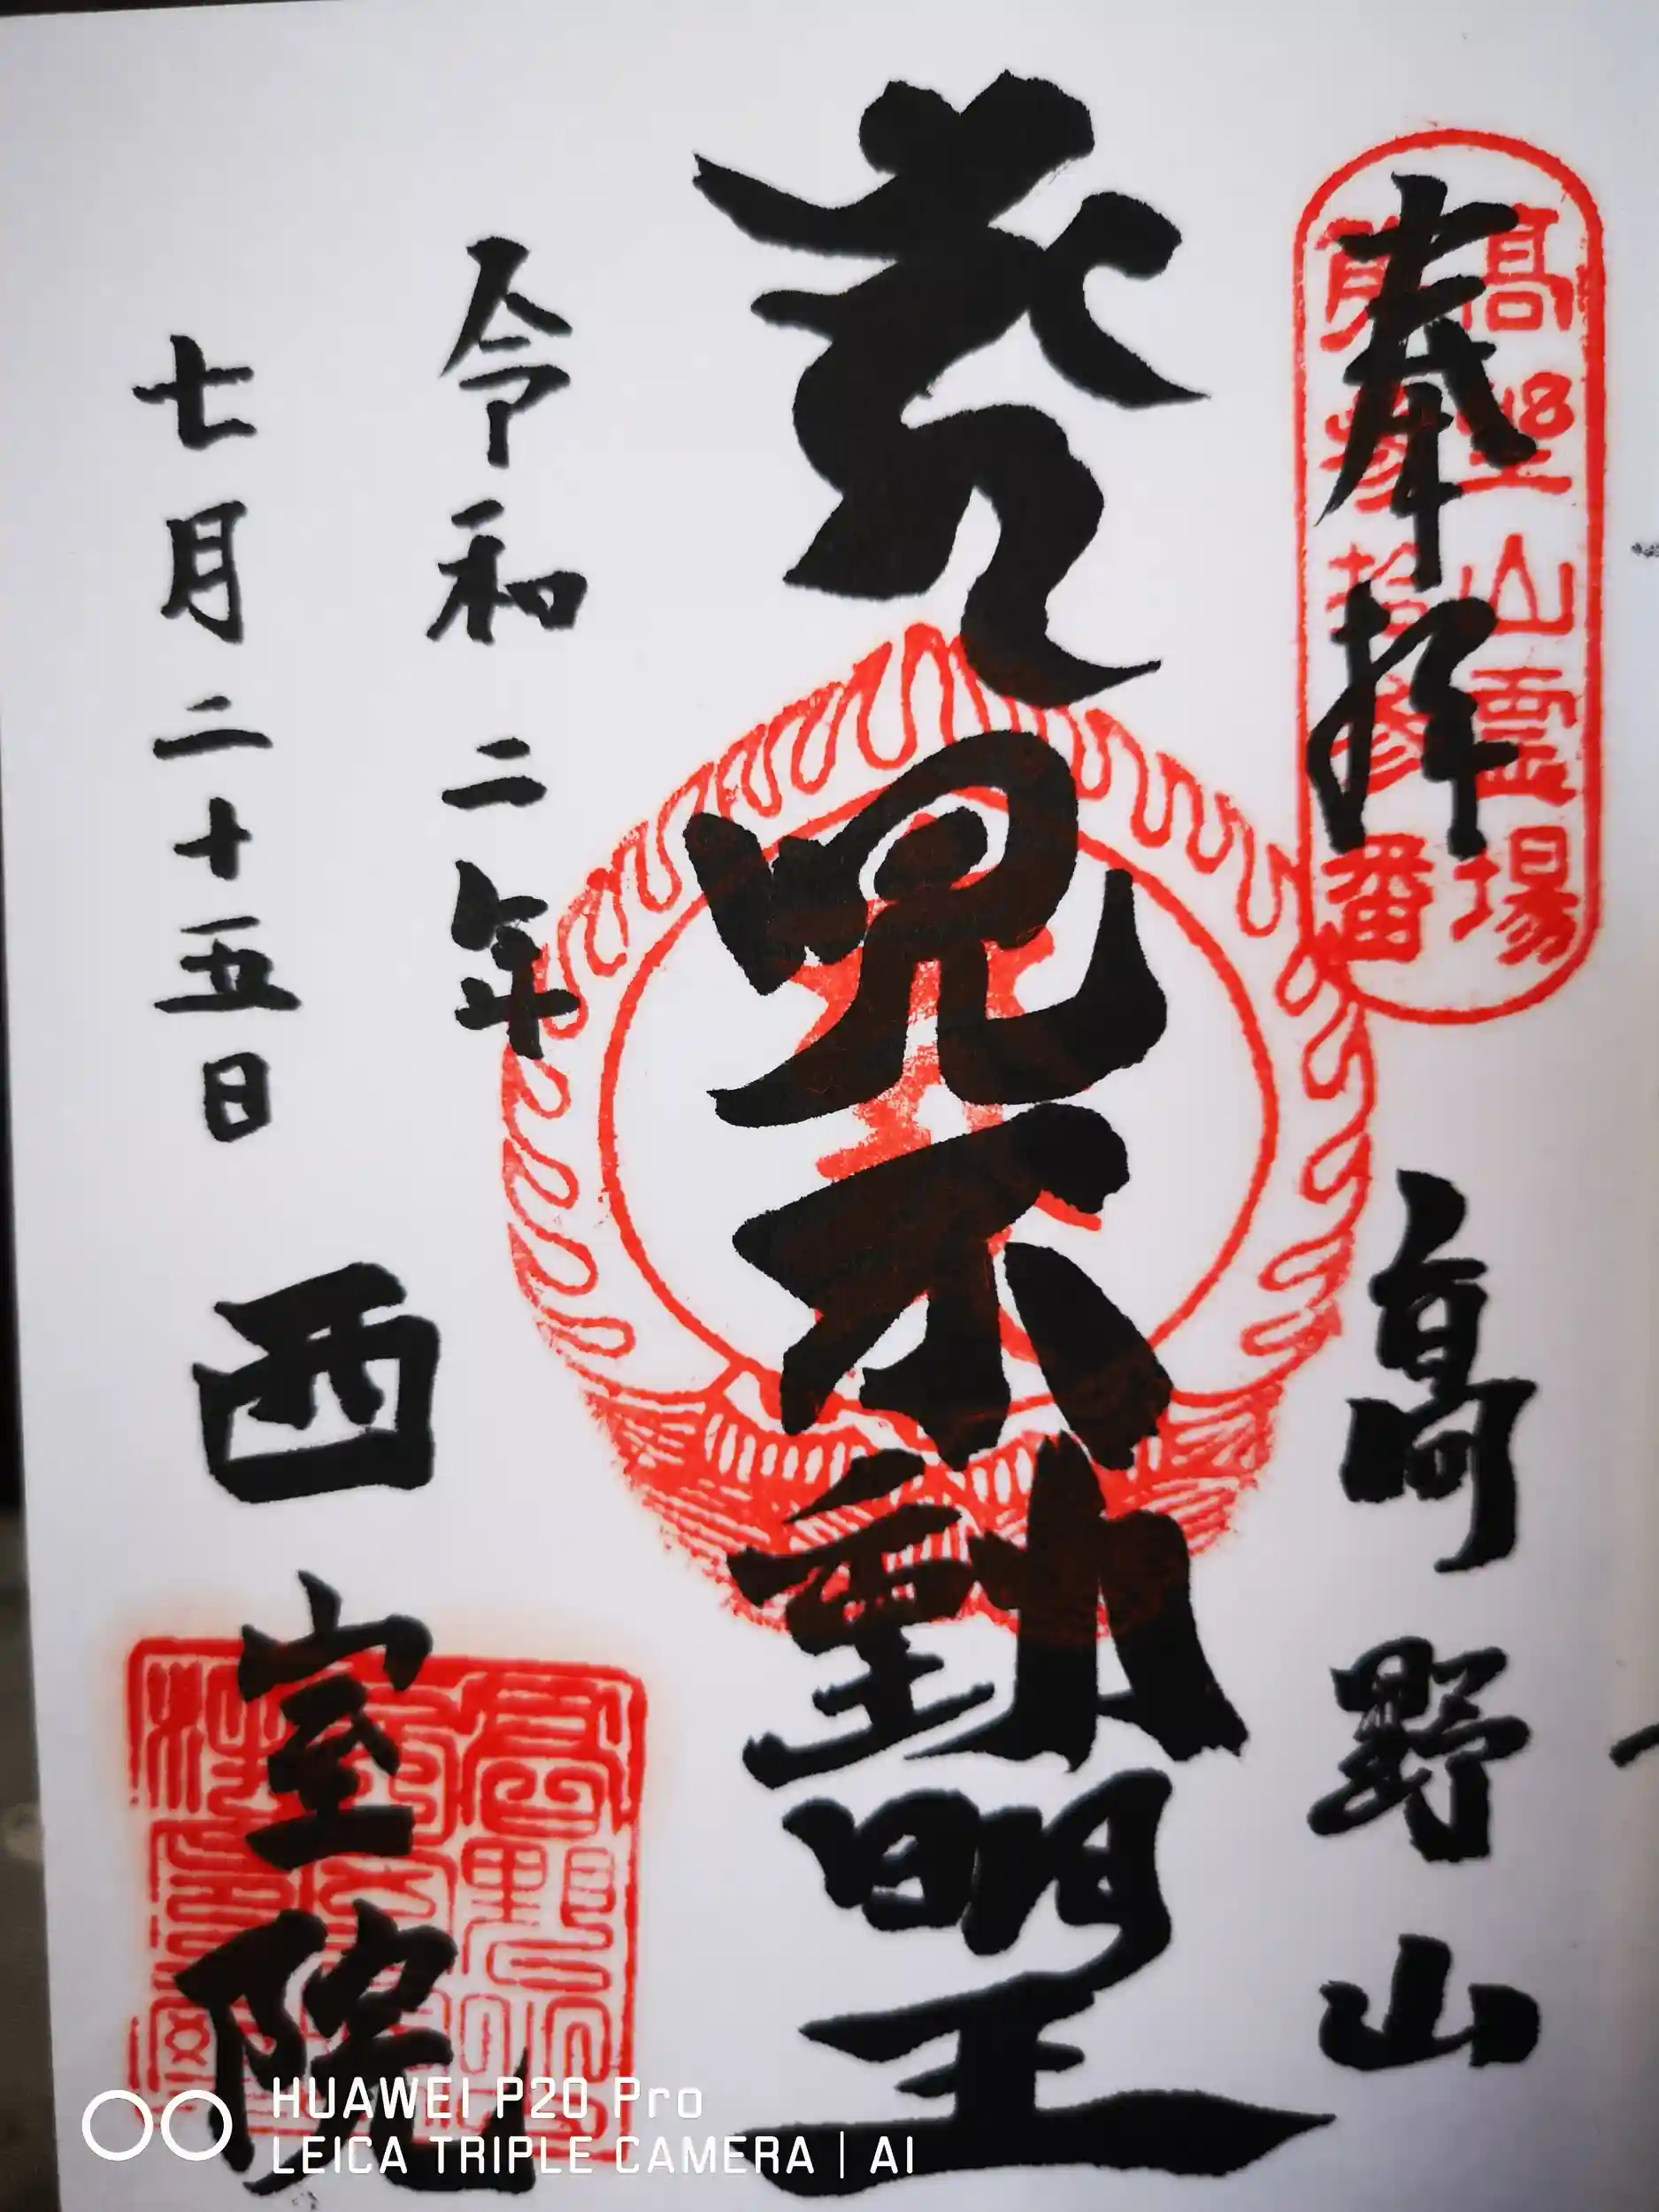 奉拝
高野山
高 山霊場
番
咒不動明王
令和二年
七月二十五日
西室院
HUAWEI P20 Pro
LEICA TRIPLE CAMERA | AI